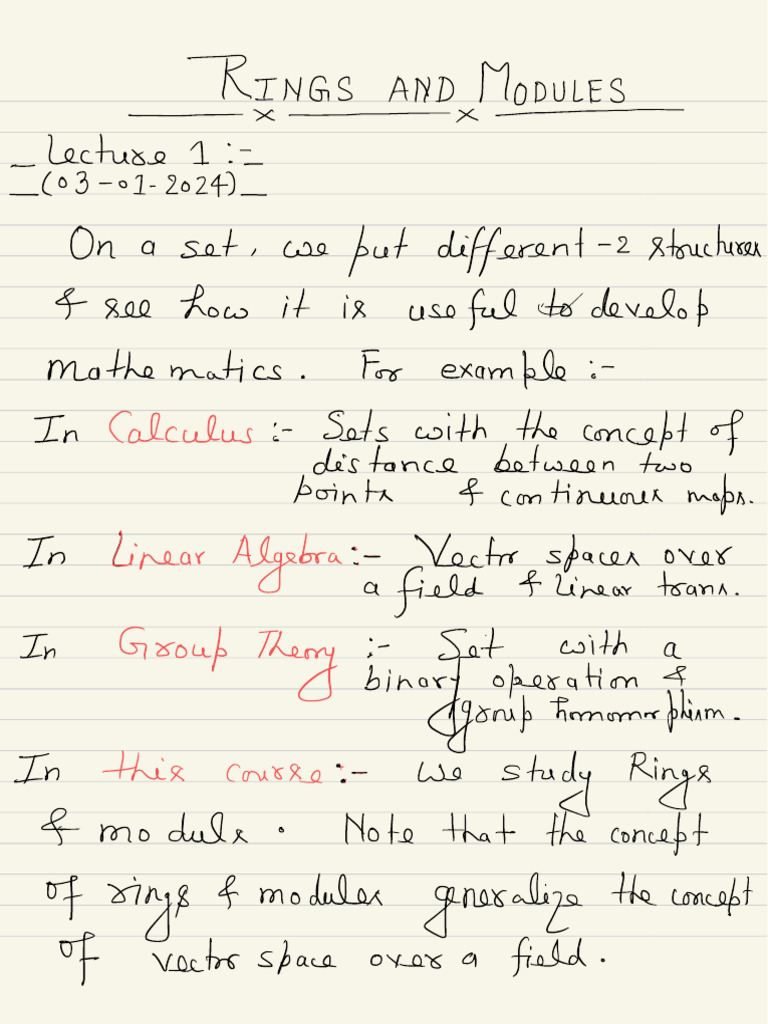 RINGS AND MODULES
Lecture 1 :-
(03-01-2024)
On a set, we put different-2 structures
& see how it is useful to develop
mathematics. For example :-
In Calculus :- Sets with the concept of
distance between two
points & continuous maps.
In Linear Algebra :- Vector spaces over
a field & linear trans.
In Group Theory :- Set with a
binary operation &
group homomorphism.
In this course :- we study Rings
& module. Note that the concept
of rings & modules generalize the concept
of vector space over a field.